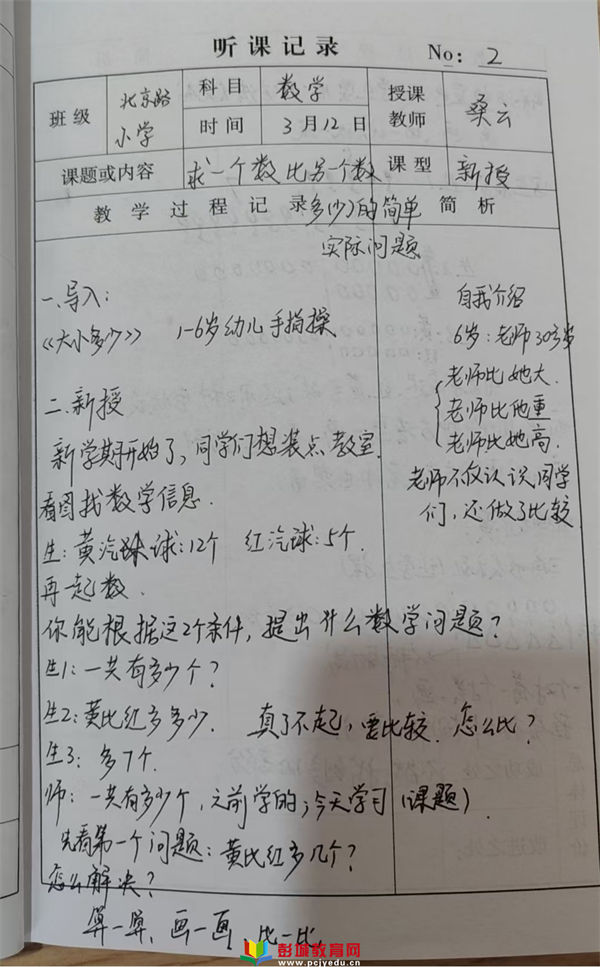 听课记录 No: 2
班级 北京路小学 科目 数学 授课教师 桑云
时间 3月12日
课题或内容 求一个数比另一个数 课型 新授
教学过程记录 多(少)的简单 简析
实际问题
一、导入：
自我介绍
《大小多少》 1-6岁幼儿手指操
6岁：老师30多岁
老师比她大.
二、新授
老师比他重
老师比她高.
新学期开始了，同学们想装点教室.
老师不仅认识同学
看图找数学信息.
们，还做了比较
生：黄汽球球：12个 红汽球：5个.
再一起数.
你能根据这2个条件，提出什么数学问题？
生1：一共有多少个？
生2：黄比红多多少. 真了不起，要比较. 怎么比？
生3：多7个.
师：一共有多少个，之前学的；今天学习（课题）.
先看第一个问题：黄比红多几个？
怎么解决？
算一算、画一画、比一比
彭城教育网
www.pcjyedu.cn